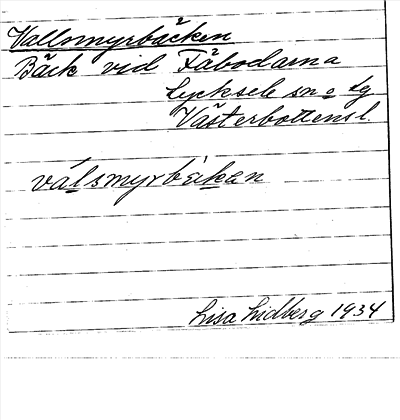 Vallsmyrbäcken
Bäck vid Fäbodarna
Lycksele sn o lg
Västerbottens l.
válsmyrbèkan
Lisa Lidberg 1934